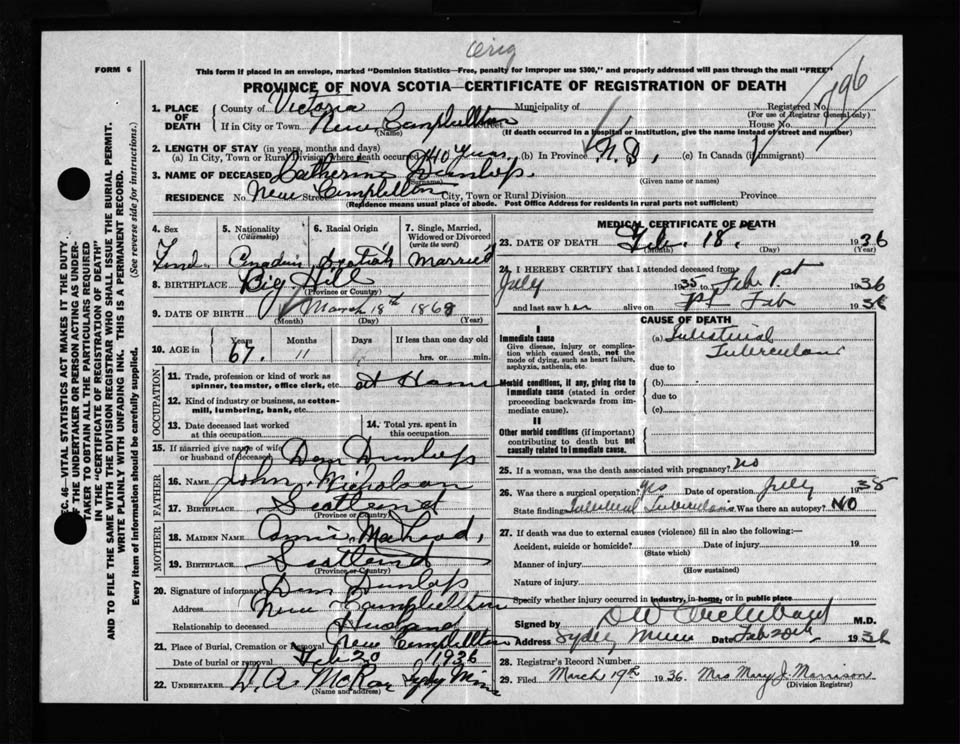 Orig
FORM 6
This form if placed in an envelope, marked "Dominion Statistics—Free, penalty for improper use $300," and properly addressed will pass through the mail "FREE"
PROVINCE OF NOVA SCOTIA—CERTIFICATE OF REGISTRATION OF DEATH
196
1. PLACE OF DEATH County of Victoria Municipality of Registered No.
(For use of Registrar General only)
If in City or Town New Campbellton Street House No.
(Name) (If death occurred in a hospital or institution, give the name instead of street and number)
2. LENGTH OF STAY (in years, months and days)
(a) In City, Town or Rural Division where death occurred 40 years (b) In Province N.S. (c) In Canada (if immigrant)
3. NAME OF DECEASED Catherine Dunlop
(Surname) (Given name or names)
RESIDENCE No. New Campbellton Street City, Town or Rural Division Province
(Residence means usual place of abode. Post Office Address for residents in rural parts not sufficient)
4. Sex 5. Nationality (Citizenship) 6. Racial Origin 7. Single, Married, Widowed or Divorced (write the word)
Canadian Scotish Married
8. BIRTHPLACE Big Hill
(Province or Country)
9. DATE OF BIRTH March 18th 1868
(Month) (Day) (Year)
10. AGE in Years Months Days If less than one day old
67. 11 hrs. or min.
OCCUPATION
11. Trade, profession or kind of work as spinner, teamster, office clerk, etc. at Home
12. Kind of industry or business, as cotton-mill, lumbering, bank, etc.
13. Date deceased last worked at this occupation
14. Total yrs. spent in this occupation
15. If married give name of wife or husband of deceased Dan Dunlop
FATHER
16. Name John Nicholson
17. Birthplace Scotland
(Province or Country)
MOTHER
18. MAIDEN NAME Annie McLeod,
19. Birthplace Scotland
(Province or Country)
20. Signature of informant Dan Dunlop
Address New Campbellton
Relationship to deceased Husband
21. Place of Burial, Cremation or Removal New Campbellton
Date of burial or removal Feb 20 1936
22. UNDERTAKER W. A. McRae Sydney Mines
(Name and address)
MEDICAL CERTIFICATE OF DEATH
23. DATE OF DEATH Feb. 18. 1936
(Month) (Day) (Year)
24. I HEREBY CERTIFY that I attended deceased from
July 1935 to Feb 1st 1936
and last saw her alive on 1st Feb 1936
CAUSE OF DEATH
I
Immediate cause
Give disease, injury or complication which caused death, not the mode of dying, such as heart failure, asphyxia, asthenia, etc.
(a) Tuberculosis
due to
Morbid conditions, if any, giving rise to immediate cause (stated in order proceeding backwards from immediate cause).
(b)
due to
(c)
II
Other morbid conditions (if important) contributing to death but not causally related to immediate cause.
25. If a woman, was the death associated with pregnancy? no
26. Was there a surgical operation? yes Date of operation July 1935
State findings Tuberculosis Was there an autopsy? NO
27. If death was due to external causes (violence) fill in also the following:—
Accident, suicide or homicide? Date of injury 19
(State which)
Manner of injury
(How sustained)
Nature of injury
Specify whether injury occurred in industry, in home, or in public place
Signed by D W Archibald M.D.
Address Sydney Mines Date Feb 20th 1936
28. Registrar's Record Number
29. Filed March 19th 1936. Mrs Mary J. Morrison
(Division Registrar)
SEC. 46—VITAL STATISTICS ACT MAKES IT THE DUTY
OF THE UNDERTAKER OR PERSON ACTING AS UNDER-
TAKER TO OBTAIN ALL THE PARTICULARS REQUIRED
IN THE "CERTIFICATE OF REGISTRATION OF DEATH"
AND TO FILE THE SAME WITH THE DIVISION REGISTRAR WHO SHALL ISSUE THE BURIAL PERMIT.
WRITE PLAINLY WITH UNFADING INK. THIS IS A PERMANENT RECORD.
Every item of information should be carefully supplied. (See reverse side for instructions).